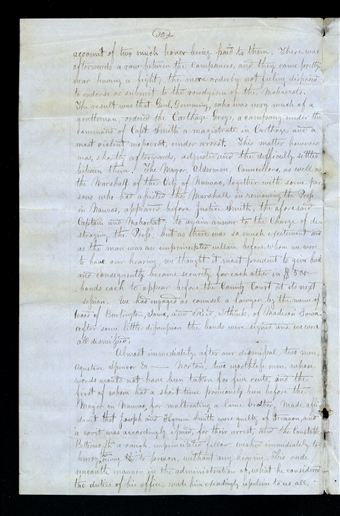 account of two much honor being paid to them. There was
afterwards a row between the Companies, and they came pretty
near having a fight, the more orderly not feeling disposed
to endorse or submit to the conditions of the
The result was that Genl. Demming, who was very much of a
gentleman, ordered the Carthage Greys, a company under the
command of Capt. Smith a magistrate in Carthage, and a
most violent mobocrat, under arrest. This matter however
was, shortly afterwards, adjusted and the difficulty settled
between them. The Mayor, Aldermen, Councillors, as well as
the Marshall of the City of Nauvoo, together with some per
sons who had assisted the Marshall in removing the Press
in Nauvoo, appeared before Justice Smith, the aforesaid
Captain and Mobocrat, to again answer to the Charge of de
stroying the Press, but as there was so much excitement and
as the man was an unprincipled villain before whom we were
to have our hearing, we thought it most prudent to give bail
and consequently became security for each other in $500
bonds each to appear before the County Court at its next
session. We had engaged as counsel a lawyer by the name of
Wood of Burlington, Iowa, and Reid, I think, of Madison Iowa.
After some little discussion the bonds were signed and we were
all dismissed.
Almost immediately after our dismissal, two men,
Agustine Spencer & — Norton, two worthless men, whose
words would not have been taken for five cents, and the
first of whom had a short time previously been before the
Mayor in Nauvoo, for maltreating a lame brother, Made affi
davit that Joseph and Hyrum Smith were guilty of treason, and
a writ was accordingly issued, for their arrest, and the Constable
Bettisworth a rough unprincipled fellow wished immediately to
hurry them to prison, without any hearing. His rude
uncouth manner in the administration of, what he considered
the duties of his office made him exceedingly repulsive to us all.